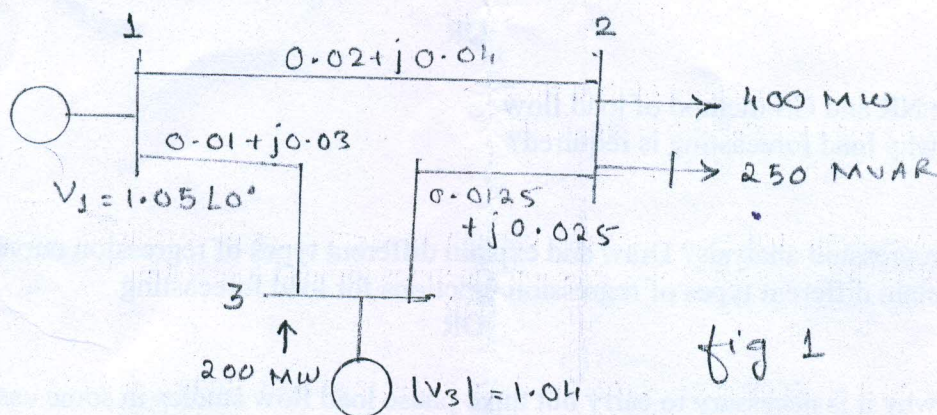 1
2
0.02+j0.04
400 MW
0.01+j0.03
250 MVAR
V1=1.05∠0°
0.0125
+j0.025
3
200 MW
|V3|=1.04
fig 1